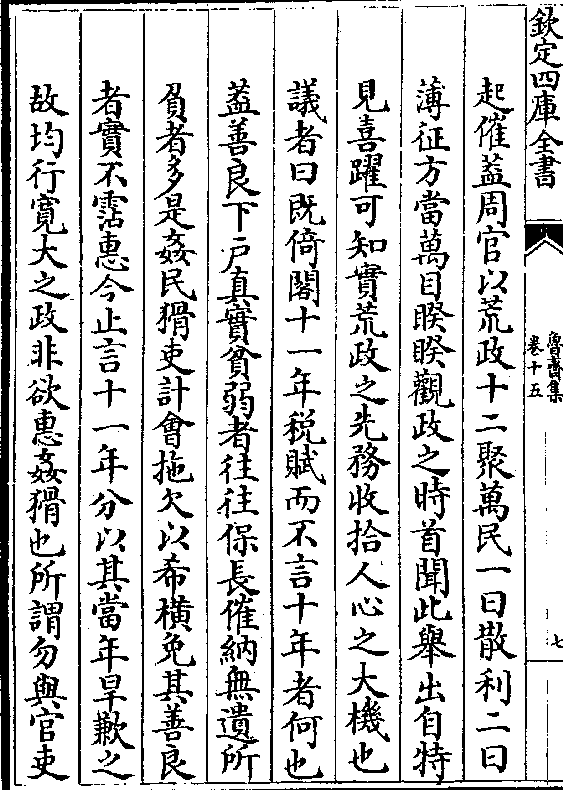 欽定四庫全書
魯齋集
卷十五
七
起催蓋周官以荒政十二聚萬民一曰散利二曰
薄征方當萬目睽睽觀政之時首聞此舉出自特
見喜躍可知實荒政之先務收拾人心之大機也
議者曰既倚閣十一年稅賦而不言十年者何也
葢善良下戶真實貧弱者往往保長催納無遺所
貧者多是姦民猾吏計會拖欠以希橫免其善良
者實不霑惠今止言十一年分以其當年旱歉之
故均行寛大之政非欲惠姦猾也所謂勿與官吏